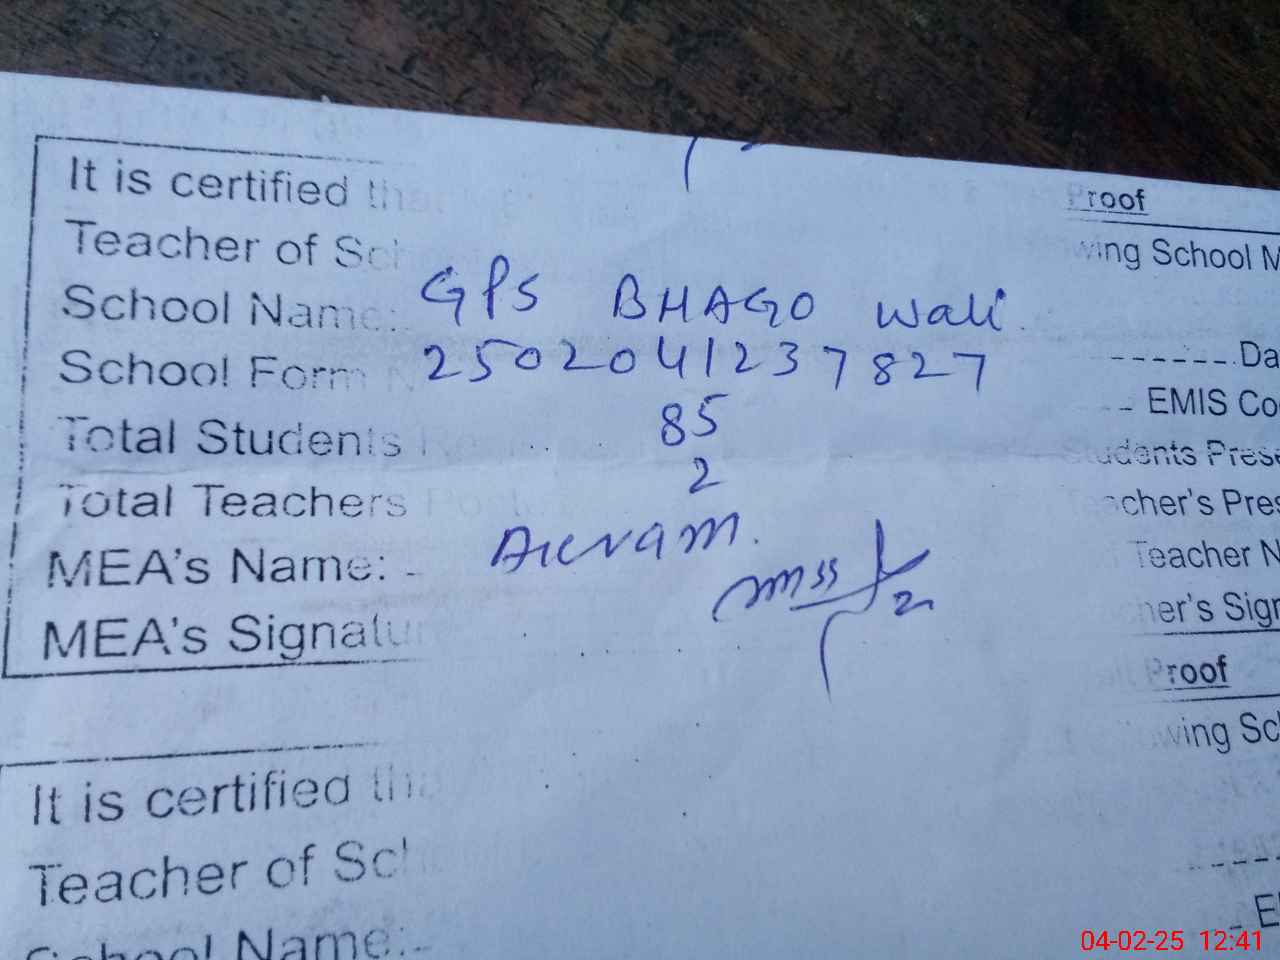 It is certified that
Teacher of Sch
School Name:- GPS BHAGO Wali.
School Form N 2502041237827
Total Students 85
Total Teachers 2
MEA's Name: - Akram.
MEA's Signatur
Proof
wing School M
------- Da
-- EMIS Co
Students Prese
cher's Pres
Teacher N
her's Sign
Proof
wing Sc
It is certified tha
Teacher of Sch
School Name:-
E
04-02-25 12:41